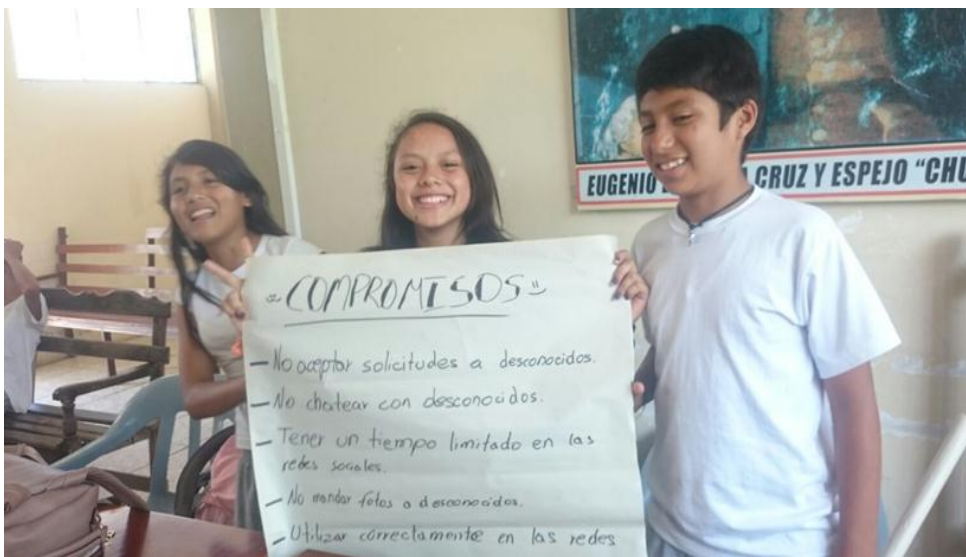 EUGENIO CRUZ Y ESPEJO "CHU
COMPROMISOS
- No aceptar solicitudes a desconocidos.
- No chatear con desconocidos.
- Tener un tiempo limitado en las
redes sociales.
- No mandar fotos a desconocidos.
- Utilizar correctamente en las redes